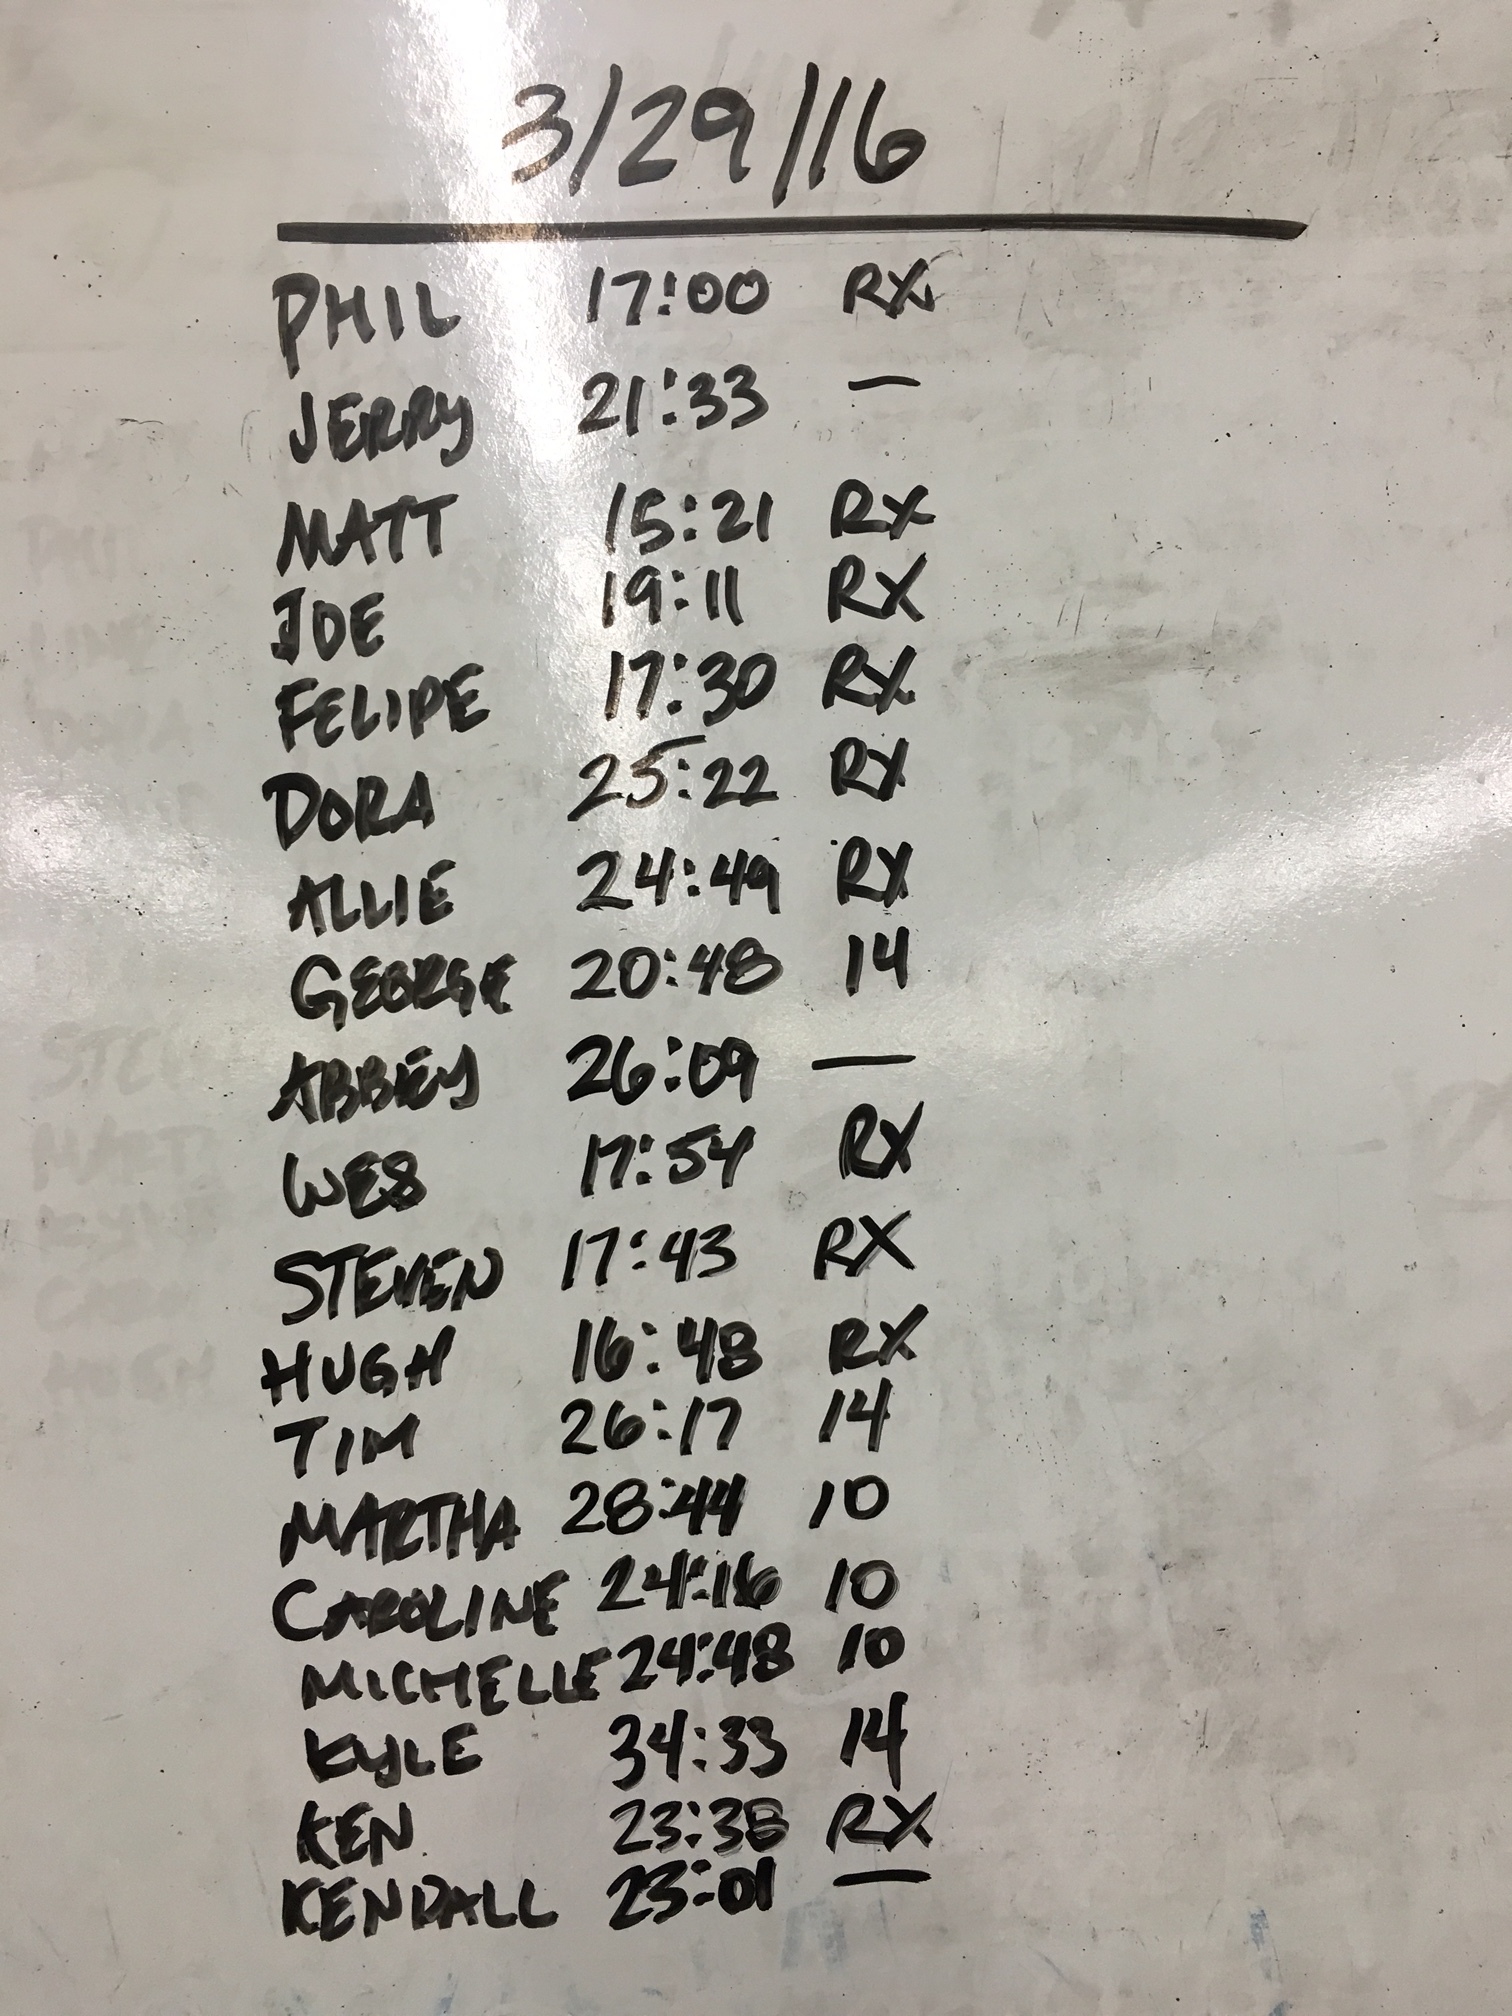 3/29/16
PHIL 17:00 RX
JERRY 21:33 —
MATT 15:21 RX
JOE 19:11 RX
FELIPE 17:30 RX
DORA 25:22 RX
ALLIE 24:49 RX
GEORGE 20:48 14
ABBEY 26:09 —
WES 17:54 RX
STEVEN 17:43 RX
HUGH 16:48 RX
TIM 26:17 14
MARTHA 28:44 10
CAROLINE 24:16 10
MICHELLE 24:48 10
KYLE 34:33 14
KEN 23:38 RX
KENDALL 23:01 —